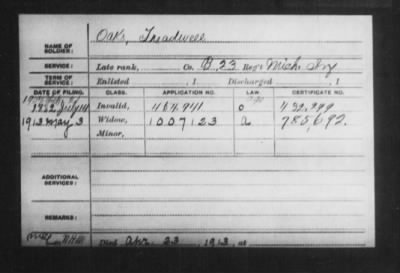 Oak, Treadwell
NAME OF SOLDIER:
SERVICE: Late rank, Co. B, 23 Reg't Mich. Inf
TERM OF SERVICE: Enlisted , 1 Discharged , 1
DATE OF FILING. CLASS. APPLICATION NO. LAW. CERTIFICATE NO.
1882 July 11 Invalid, 454.941 432.999
1913 May 3 Widow, 1007123 785,692.
Minor,
ADDITIONAL SERVICES:
REMARKS:
Died Apr. 23, 1913, at